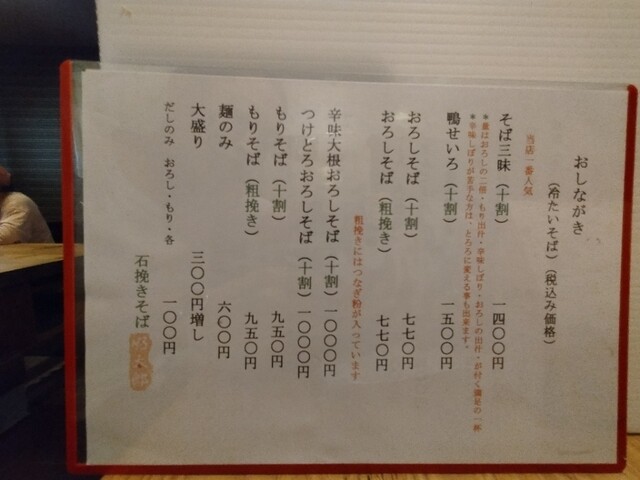 おしながき
（冷たいそば）（税込み価格）
当店一番人気
そば三昧（十割） 一四〇〇円
＊量はおろしの二倍・もり出汁・辛味しぼり・おろしの出汁・が付く満足の一杯
＊辛味しぼりが苦手な方は、とろろに変える事も出来ます。
鴨せいろ（十割） 一五〇〇円
おろしそば（十割） 七七〇円
おろしそば（粗挽き） 七七〇円
粗挽きにはつなぎ粉が入っています
辛味大根おろしそば（十割）一〇〇〇円
つけとろおろしそば（十割）一〇〇〇円
もりそば（十割） 九五〇円
もりそば（粗挽き） 九五〇円
麺のみ 六〇〇円
大盛り 三〇〇円増し
だしのみ おろし・もり・各 一〇〇円
石挽きそば